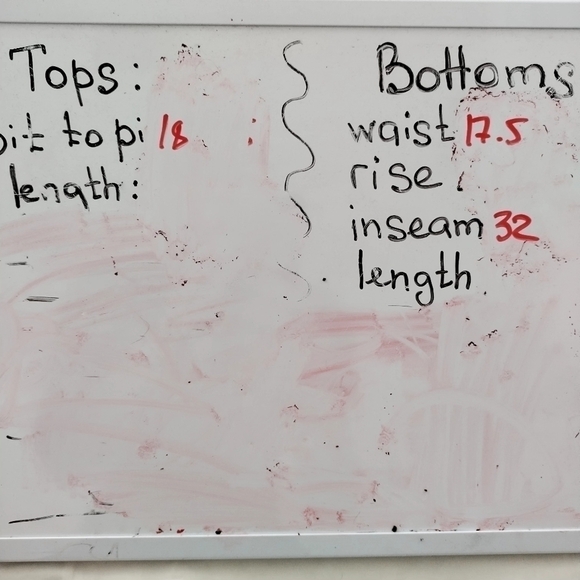 Tops:
pit to pi 18
length:
Bottoms
waist 17.5
rise
inseam 32
length